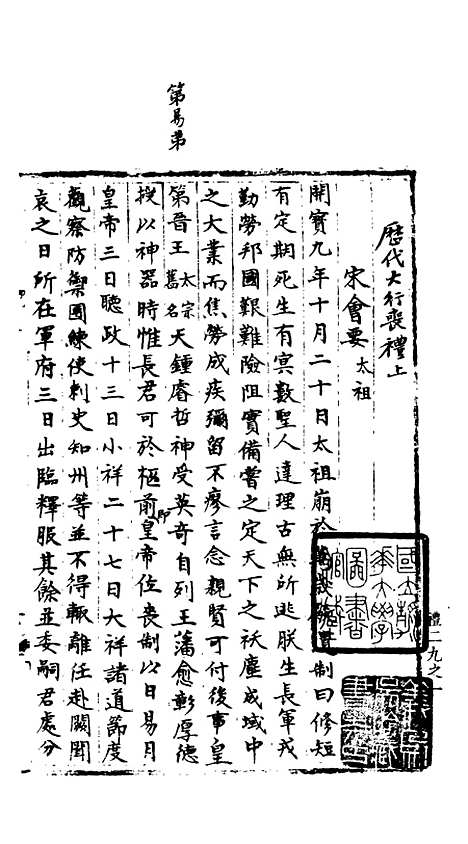 第易弟
歷代大行喪禮上
宋會要 太祖
開寶九年十月二十日太祖崩於萬歲殿遺制曰修短
有定期死生有冥數聖人達理古無所逃朕生長軍戎
勤勞邦國艱難險阻實備嘗之定天下之祅塵成域中
之大業而焦勞成疾彌留不廖言念親賢可付後事皇
第晉王太宗舊名天鍾睿哲神受英奇自列王藩愈彰厚德
授以神器時惟長君可於柩前即皇帝位喪制以日易月
皇帝三日聽政十三日小祥二十七日大祥諸道節度
觀察防禦團練使刺史知州等並不得輙離任赴闕聞
哀之日所在軍府三日出臨釋服其餘並委嗣君處分
禮二九之一